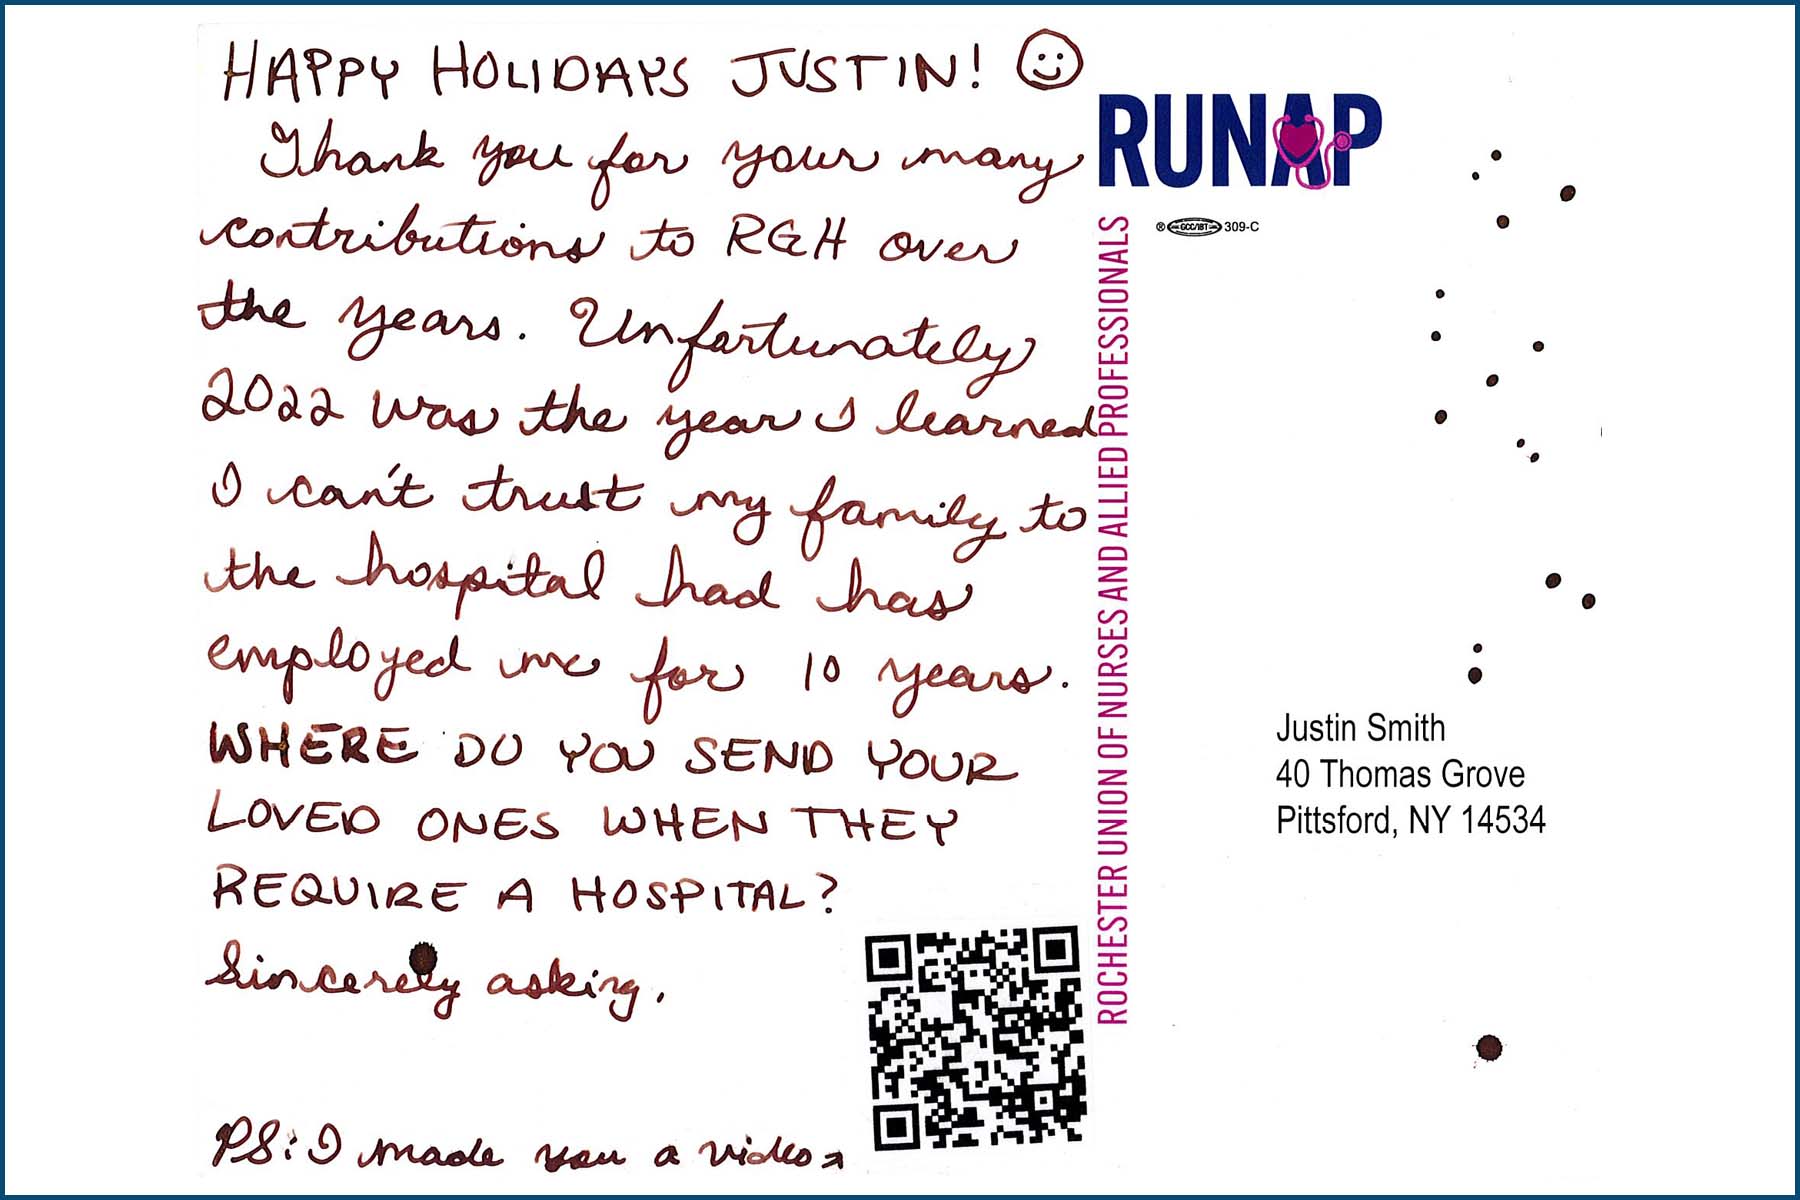 HAPPY HOLIDAYS JUSTIN!
Thank you for your many
contributions to RGH over
the years. Unfortunately
2022 was the year I learned
I can't trust my family to
the hospital had has
employed me for 10 years.
WHERE DO YOU SEND YOUR
LOVED ONES WHEN THEY
REQUIRE A HOSPITAL?
Sincerely asking,
PS: I made you a video
RUNAP
® GCC/IBT 309-C
ROCHESTER UNION OF NURSES AND ALLIED PROFESSIONALS
Justin Smith
40 Thomas Grove
Pittsford, NY 14534